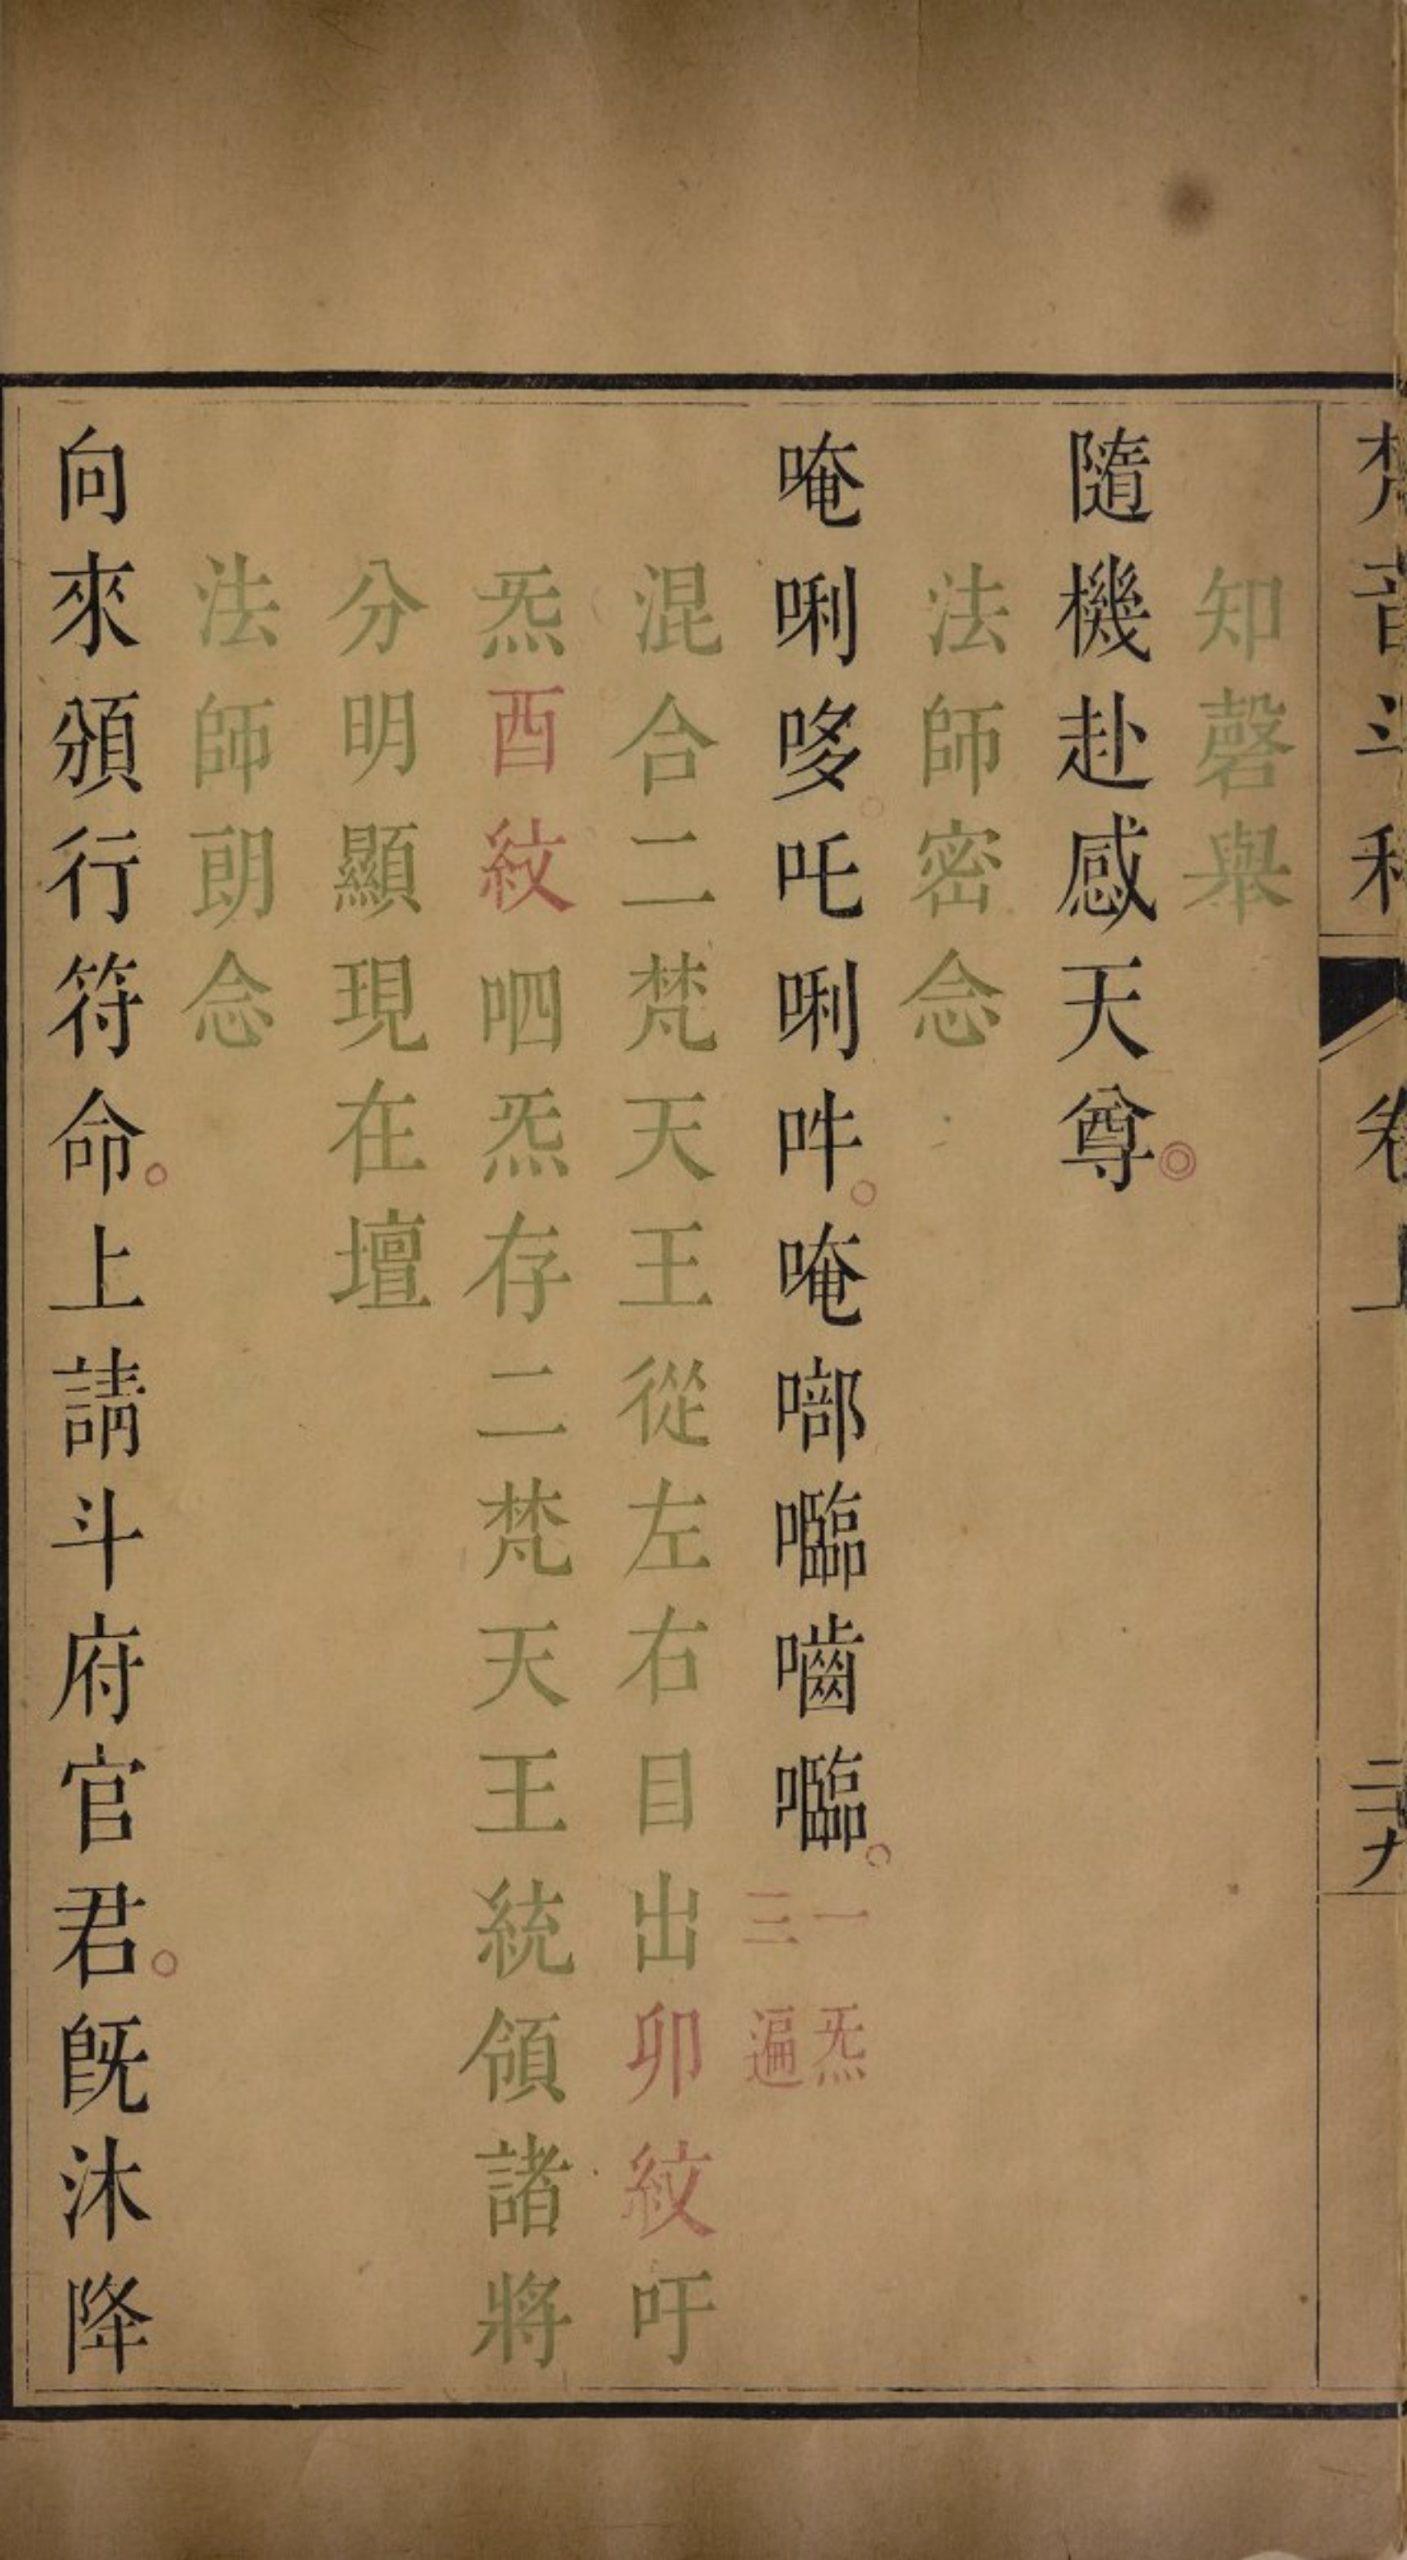 梵音斗科 卷上 二十九
知磬舉
隨機赴感天尊
法師密念
唵唎哆吒唎吽唵㘐嚂嚙嚂一炁三遍
混合二梵天王從左右目出卯紋吁
炁酉紋呬炁存二梵天王統領諸將
分明顯現在壇
法師朗念
向來頒行符命上請斗府官君旣沐降